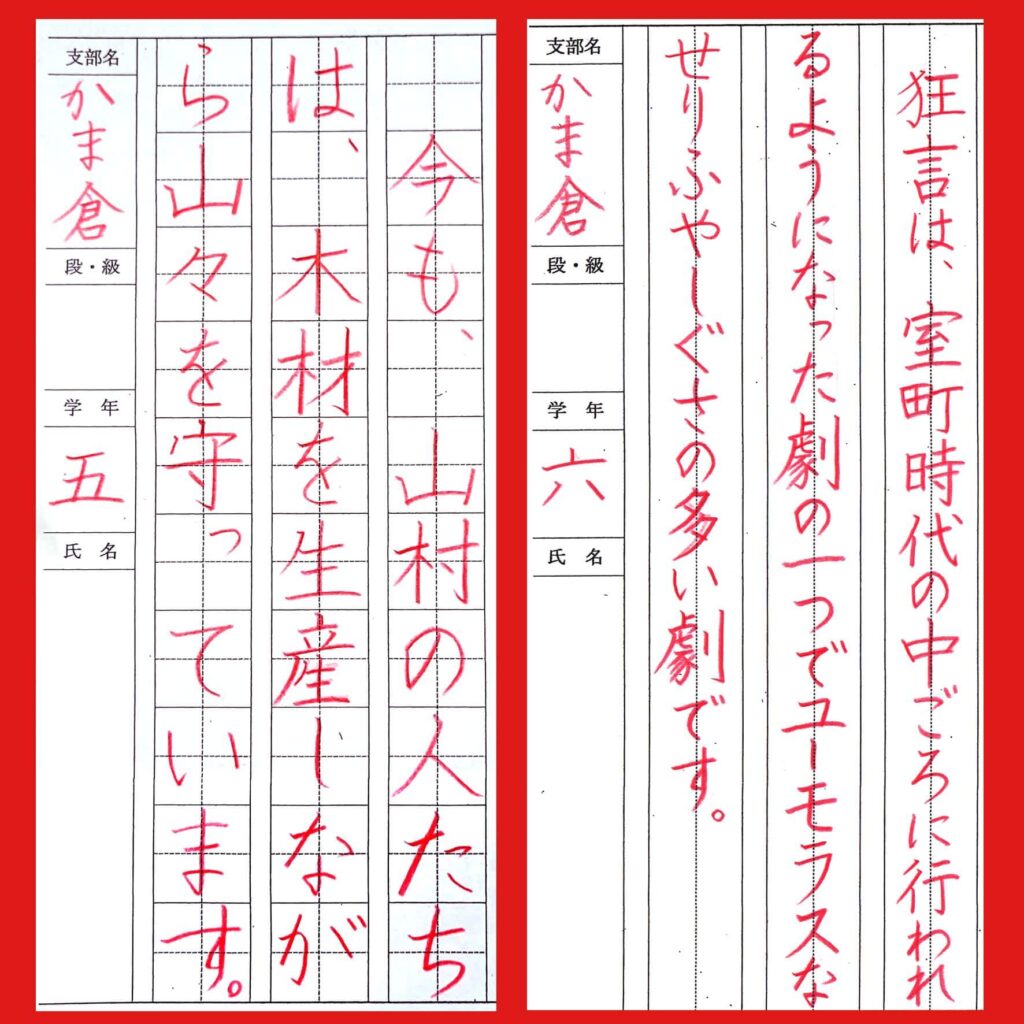 狂言は、室町時代の中ごろに行われ
るようになった劇の一つでユーモラスな
せりふやしぐさの多い劇です。
支部名
かま倉
段・級
学年
六
氏名
今も、山村の人たち
は、木材を生産しなが
ら山々を守っ
ています。
支部名
かま倉
段・級
学年
五
氏名